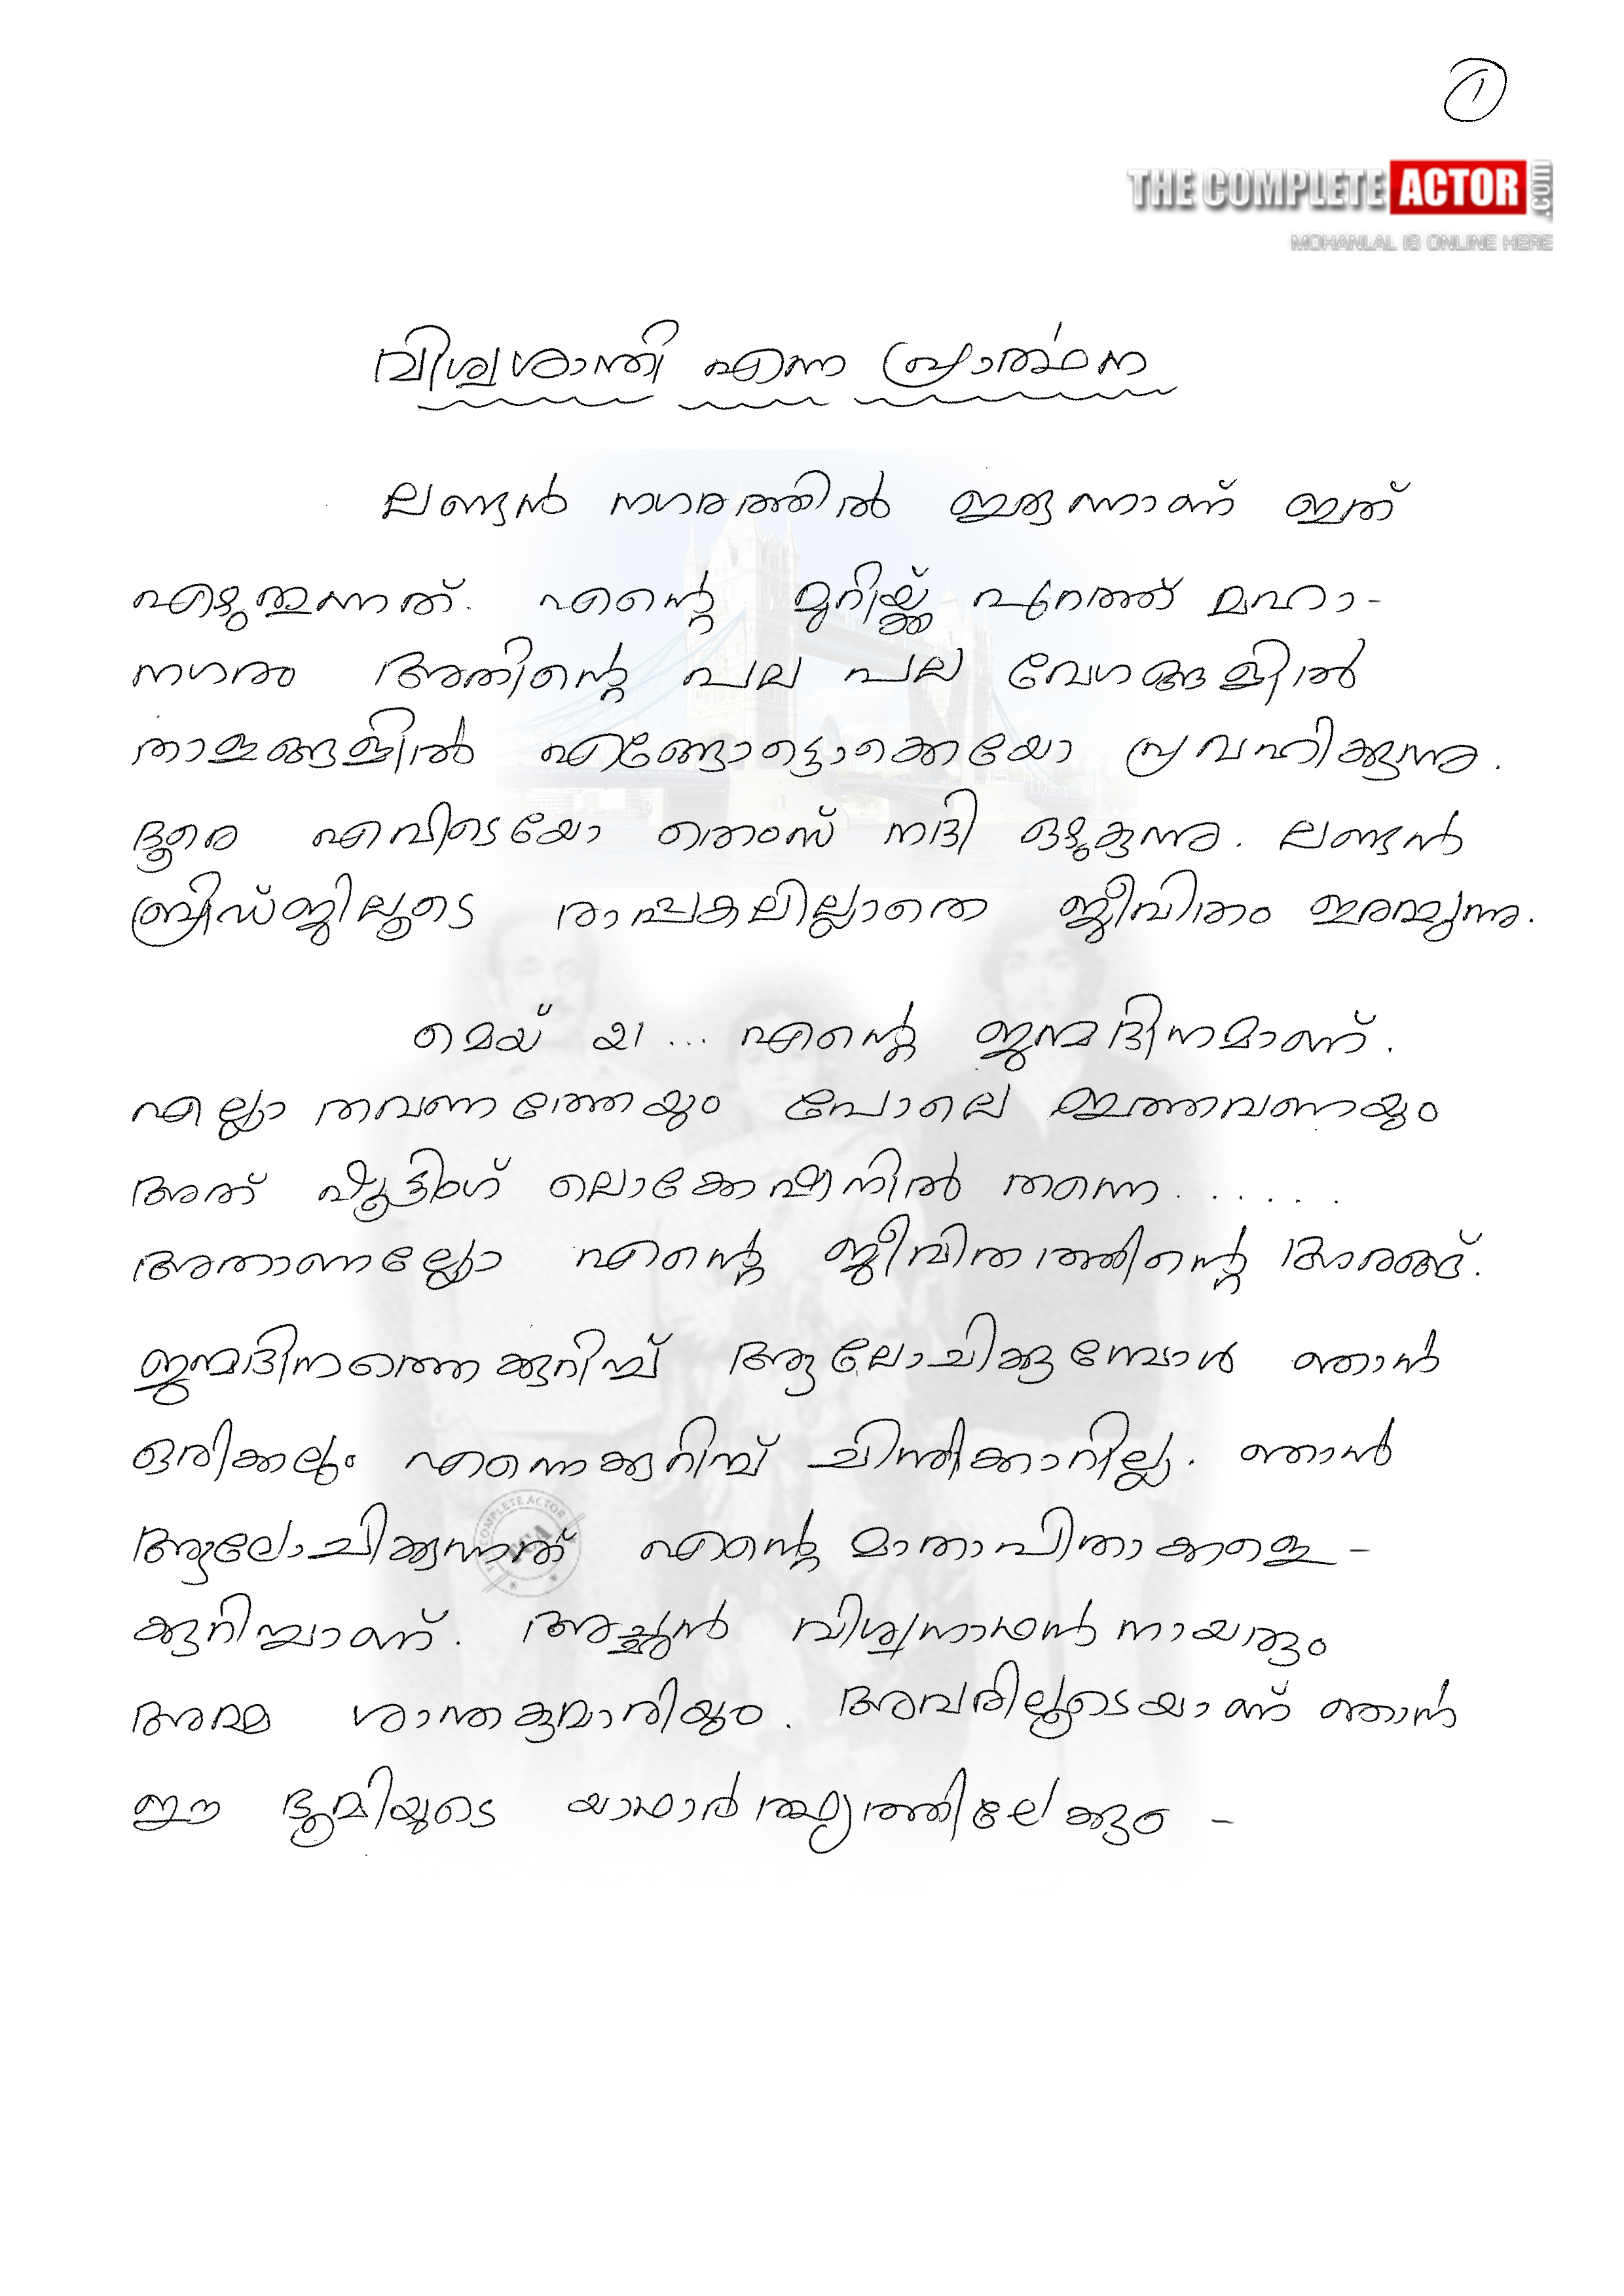 1
THE COMPLETE ACTOR .com
MOHANLAL IS ONLINE HERE
വിശ്വശാന്തി എന്ന പ്രാർത്ഥന
ലണ്ടൻ നഗരത്തിൽ ഇരുന്നാണ് ഇത്
എഴുതുന്നത്. എന്റെ മുറിയ്ക്ക് പുറത്ത് മഹാ-
നഗരം അതിന്റെ പല പല വേഗങ്ങളിൽ
താളങ്ങളിൽ എങ്ങോട്ടൊക്കെയോ പ്രവഹിക്കുന്നു.
ദൂരെ എവിടെയോ തെംസ് നദി ഒഴുകുന്നു. ലണ്ടൻ
ബ്രിഡ്ജിലൂടെ രാപ്പകലില്ലാതെ ജീവിതം ഇരമ്പുന്നു.
മെയ് 21 ... എന്റെ ജന്മദിനമാണ്.
എല്ലാ തവണത്തേയും പോലെ ഇത്തവണയും
അത് ഷൂട്ടിംഗ് ലൊക്കേഷനിൽ തന്നെ......
അതാണല്ലോ എന്റെ ജീവിതത്തിന്റെ അരങ്ങ്.
ജന്മദിനത്തെക്കുറിച്ച് ആലോചിക്കുമ്പോൾ ഞാൻ
ഒരിക്കലും എന്നെക്കുറിച്ച് ചിന്തിക്കാറില്ല. ഞാൻ
ആലോചിക്കുന്നത് എന്റെ മാതാപിതാക്കളെ-
ക്കുറിച്ചാണ്. അച്ഛൻ വിശ്വനാഥൻ നായരും
അമ്മ ശാന്തകുമാരിയും. അവരിലൂടെയാണ് ഞാൻ
ഈ ഭൂമിയുടെ യാഥാർത്ഥ്യത്തിലേക്കും -
COMPLETE ACTOR